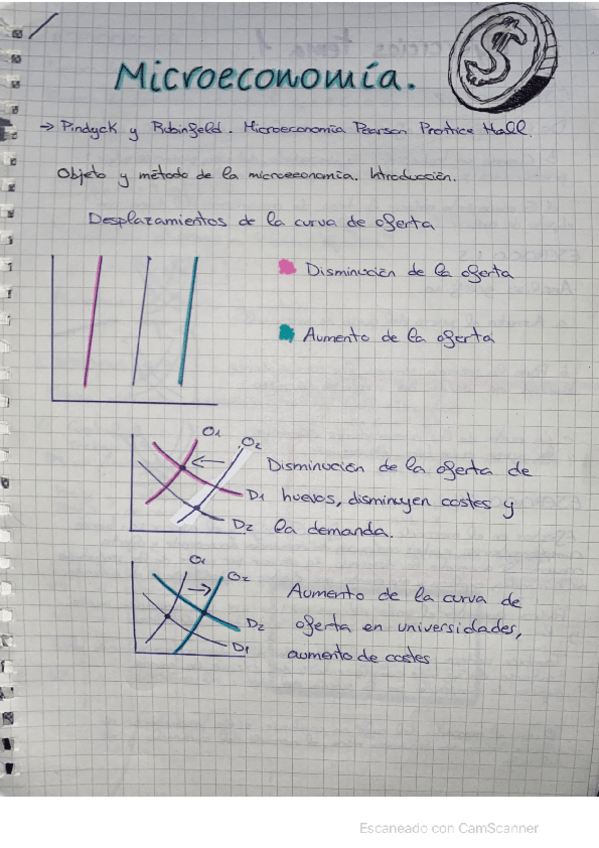 Microeconomía.
$
→ Pindyck y Rubinfeld. Microeconomía Pearson Prentice Hall.
Objeto y método de la microeconomía. Introducción.
Desplazamientos de la curva de oferta
Disminución de la oferta
Aumento de la oferta
O1
O2
Disminución de la oferta de
D1 huevos, disminuyen costes y
D2 la demanda.
O1
O2
Aumento de la curva de
D2 oferta en universidades,
D1
aumento de costes
Escaneado con CamScanner